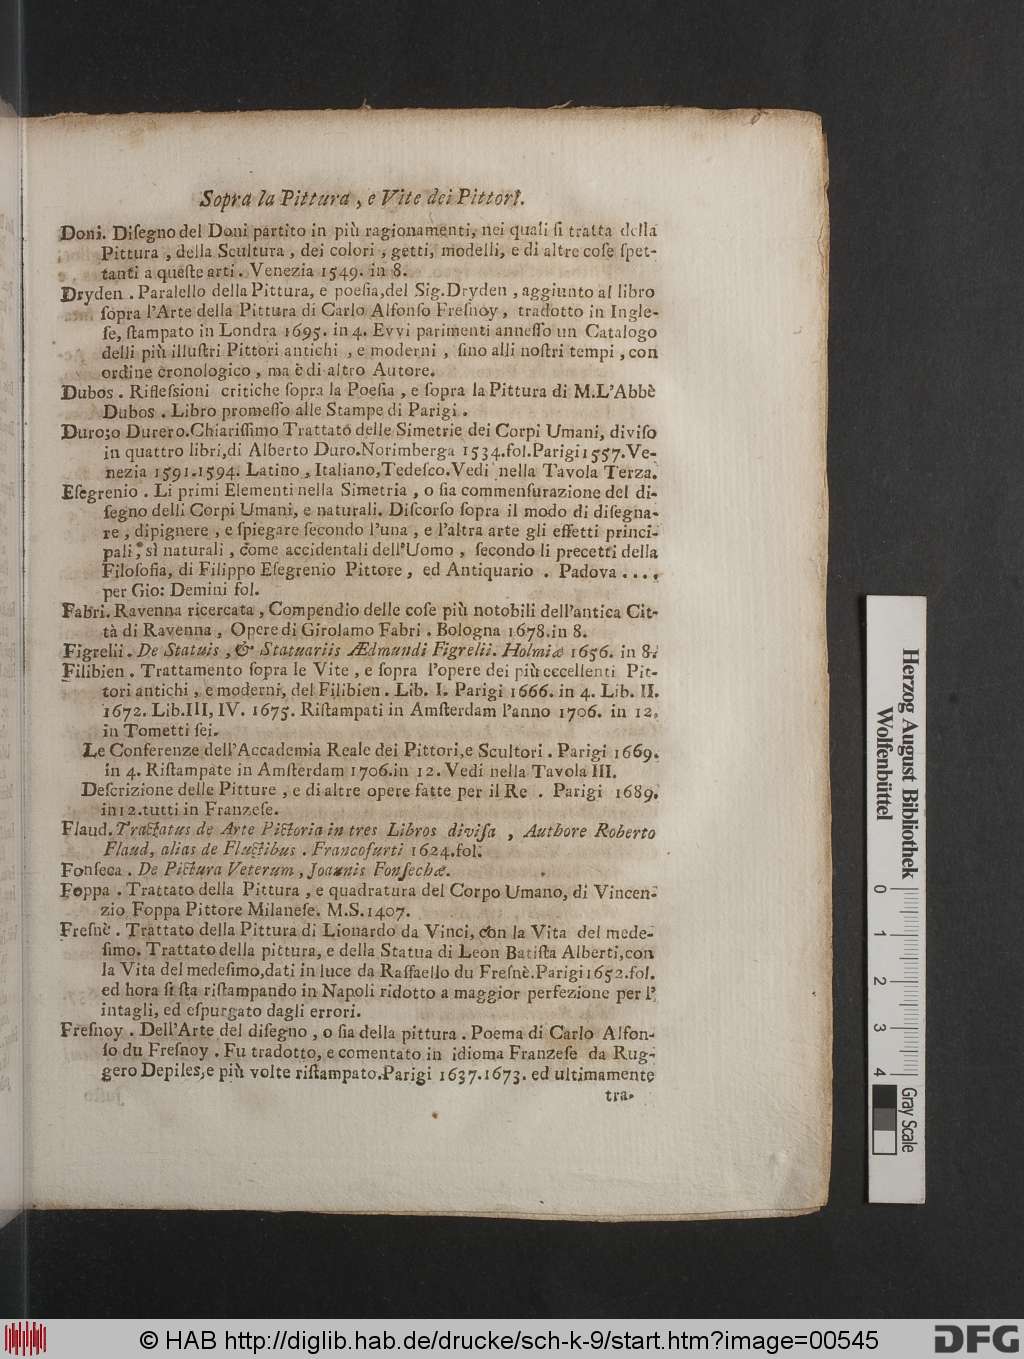 Sopra la Pittura, e Vite dei Pittori.
Doni. Diſegno del Doni partito in più ragionamenti, nei quali ſi tratta della
Pittura, della Scultura, dei colori, getti, modelli, e di altre coſe ſpet-
tanti a queſte arti. Venezia 1549. in 8.
Dryden. Paralello della Pittura, e poeſia, del Sig. Dryden, aggiunto al libro
ſopra l'Arte della Pittura di Carlo Alfonſo Freſnoy, tradotto in Ingle-
ſe, ſtampato in Londra 1695. in 4. Evvi parimenti anneſſo un Catalogo
delli più illuſtri Pittori antichi, e moderni, ſino alli noſtri tempi, con
ordine cronologico, ma è di altro Autore.
Dubos. Rifleſsioni critiche ſopra la Poeſia, e ſopra la Pittura di M. L'Abbè
Dubos. Libro promeſſo alle Stampe di Parigi.
Duro; o Durero. Chiariſſimo Trattato delle Simetrie dei Corpi Umani, diviſo
in quattro libri, di Alberto Duro. Norimberga 1534. fol. Parigi 1557. Ve-
nezia 1591. 1594. Latino, Italiano, Tedeſco. Vedi nella Tavola Terza.
Eſegrenio. Li primi Elementi nella Simetria, o ſia commenſurazione del di-
ſegno delli Corpi Umani, e naturali. Diſcorſo ſopra il modo di diſegna-
re, dipignere, e ſpiegare ſecondo l'una, e l'altra arte gli effetti princi-
pali, sì naturali, come accidentali dell'Uomo, ſecondo li precetti della
Filoſofia, di Filippo Eſegrenio Pittore, ed Antiquario. Padova....
per Gio: Demini fol.
Fabri. Ravenna ricercata, Compendio delle coſe più notobili dell'antica Cit-
tà di Ravenna, Opere di Girolamo Fabri. Bologna 1678. in 8.
Figrelii. De Statuis, & Statuariis Ædmundi Figrelii. Holmiæ 1656. in 8.
Filibien. Trattamento ſopra le Vite, e ſopra l'opere dei più eccellenti Pit-
tori antichi, e moderni, del Filibien. Lib. I. Parigi 1666. in 4. Lib. II.
1672. Lib. III, IV. 1675. Riſtampati in Amſterdam l'anno 1706. in 12.
in Tometti ſei.
Le Conferenze dell'Accademia Reale dei Pittori, e Scultori. Parigi 1669.
in 4. Riſtampate in Amſterdam 1706. in 12. Vedi nella Tavola III.
Deſcrizione delle Pitture, e di altre opere fatte per il Re. Parigi 1689.
in 12. tutti in Franzeſe.
Flaud. Tractatus de Arte Pictoria in tres Libros diviſa, Authore Roberto
Flaud, alias de Fluctibus. Francofurti 1624. fol.
Fonſeca. De Pictura Veterum, Joannis Fonſechæ.
Foppa. Trattato della Pittura, e quadratura del Corpo Umano, di Vincen-
zio Foppa Pittore Milaneſe. M.S. 1407.
Freſnè. Trattato della Pittura di Lionardo da Vinci, con la Vita del mede-
ſimo. Trattato della pittura, e della Statua di Leon Batiſta Alberti, con
la Vita del medeſimo, dati in luce da Raffaello du Freſnè. Parigi 1652. fol.
ed hora ſi ſta riſtampando in Napoli ridotto a maggior perfezione per l'
intagli, ed eſpurgato dagli errori.
Freſnoy. Dell'Arte del diſegno, o ſia della pittura. Poema di Carlo Alfon-
ſo du Freſnoy. Fu tradotto, e comentato in idioma Franzeſe da Rug-
gero Depiles, e più volte riſtampato. Parigi 1637. 1673. ed ultimamente
tra-
Herzog August Bibliothek
Wolfenbüttel
0 1 2 3 4
Gray Scale
© HAB http://diglib.hab.de/drucke/sch-k-9/start.htm?image=00545
DFG